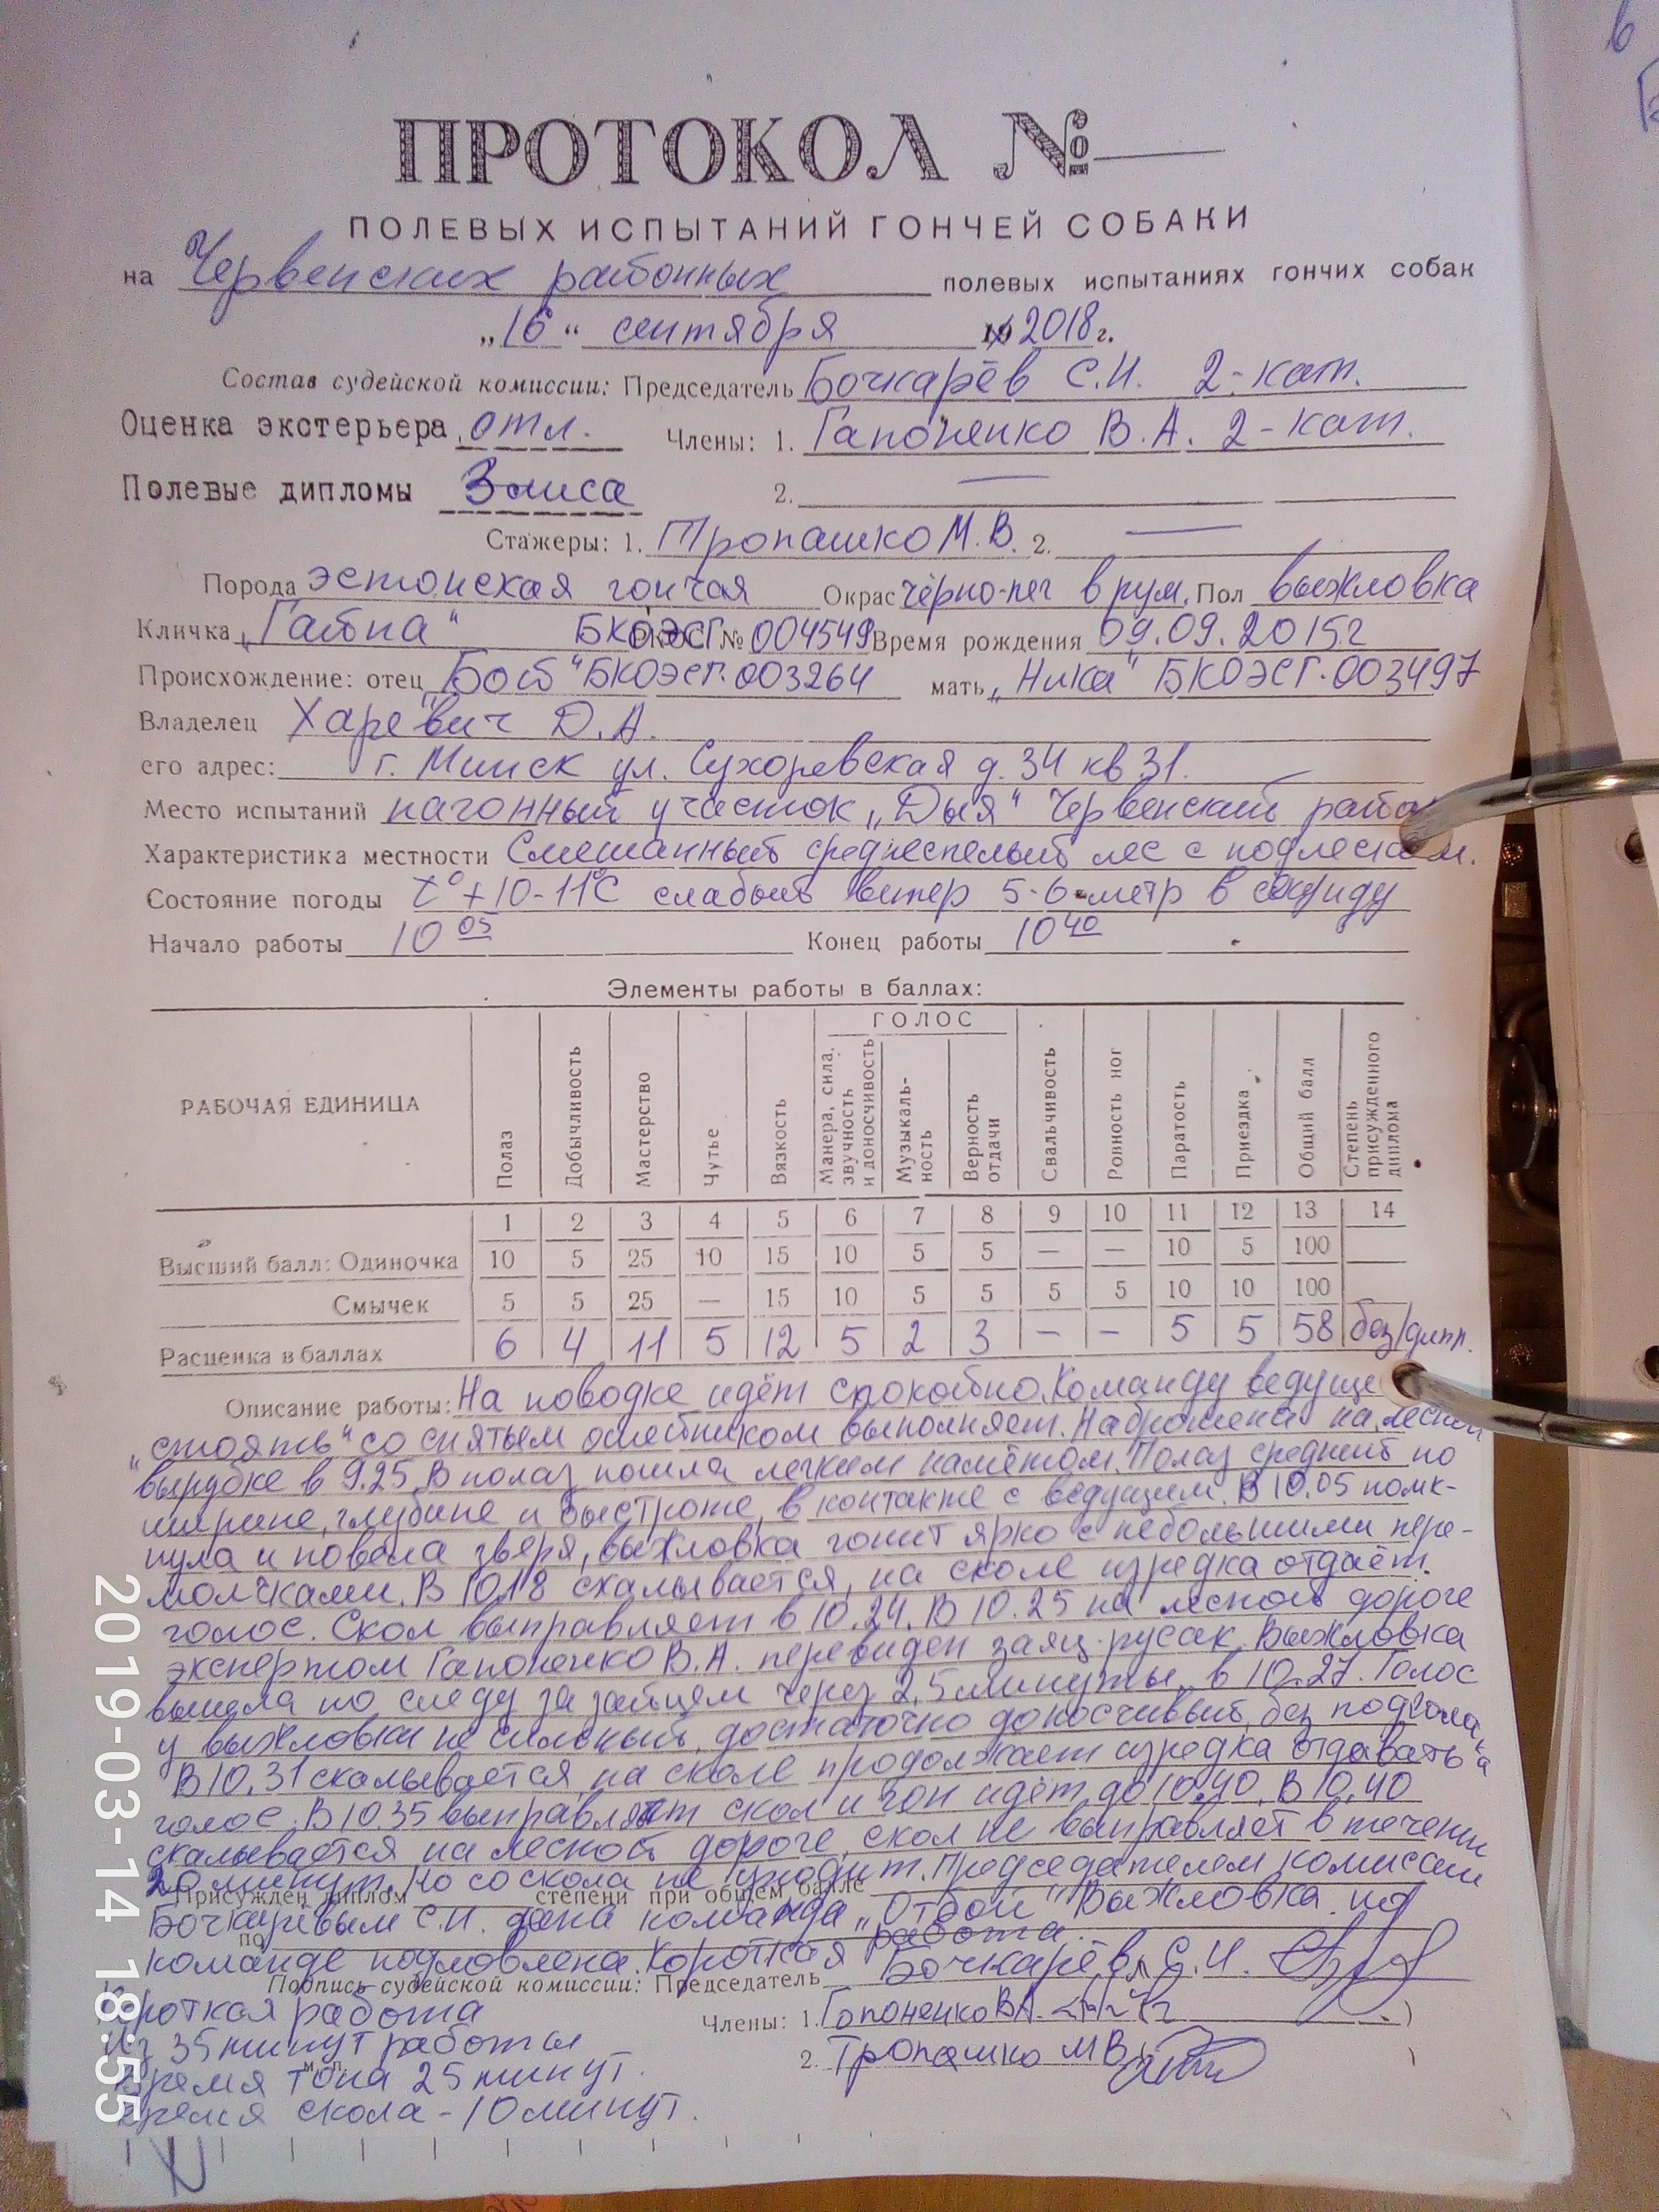 ПРОТОКОЛ №
ПОЛЕВЫХ ИСПЫТАНИЙ ГОНЧЕЙ СОБАКИ
на Червенских районных полевых испытаниях гончих собак
„16“ сентября 19 2018 г.
Состав судейской комиссии: Председатель Бочкарёв С.И. 2-кат.
Оценка экстерьера отл. Члены: 1. Гапоненко В.А. 2-кат.
Полевые дипломы 2. —
Стажеры: 1. Тропашко М.В. 2. —
Порода эстонская гончая Окрас чёрно-пег в рум. Пол выжловка
Кличка „Гайна“ БКОЭСГ № 004549 Время рождения 09.09.2015г
Происхождение: отец „Бой“ БКОЭСГ.003264 мать „Ника“ БКОЭСГ.003497
Владелец Харевич Д.А.
его адрес: г. Минск ул. Сухоревская д. 34 кв 31.
Место испытаний нагонный участок „Дыя“ Червенский район
Характеристика местности Смешанный среднеспелый лес с подлеском.
Состояние погоды t°+10-11°С слабый ветер 5-6-метр в секунду
Начало работы 10 05 Конец работы 10 40
Элементы работы в баллах:
РАБОЧАЯ ЕДИНИЦА Полаз Добычливость Мастерство Чутье Вязкость ГОЛОС Манера, сила, звучность и доносчивость Музыкаль-ность Верность отдачи Свальчивость Ровность ног Паратость Приездка Общий балл Степень присужденного диплома
1 2 3 4 5 6 7 8 9 10 11 12 13 14
Высший балл: Одиночка 10 5 25 10 15 10 5 5 — — 10 5 100
Смычек 5 5 25 — 15 10 5 5 5 5 10 10 100
Расценка в баллах 6 4 11 5 12 5 2 3 — — 5 5 58 без/дипл.
Описание работы: На поводке идёт спокойно. Команду ведуще
„стоять“ со снятым ошейником выполняет. Наброшена на лесной
вырубке в 9.25. В полаз пошла легким намётом. Полаз средний по
ширине, глубине и быстроте, в контакте с ведущим. В 10.05 помк-
нула и повела зверя, выжловка гонит ярко с небольшими пере-
молчками. В 10.18 скалывается, на сколе изредка отдаёт
голос. Скол выправляет в 10.24. В 10.25 на лесной дороге
экспертом Гапоненко В.А. перевиден заяц-русак. Выжловка
вышла по следу за зайцем через 2,5 минуты, в 10.27. Голос
у выжловки не сильный, достаточно доносчивый, без подголоска
В 10.31 скалывается, на сколе продолжает изредка отдавать
голос. В 10.35 выправляет скол и гон идёт до 10.40. В 10.40
скалывается на лесной дороге, скол не выправляет в течении
20 минут. Но со скола не уходит. Председателем комиссии
Присужден диплом степени при общем балле
Бочкарёвым С.И. дана команда „Отбой“ Выжловка по
по
команде подловлена. Короткая работа.
Подпись судейской комиссии: Председатель Бочкарёв С.И.
Короткая работа
Члены: 1. Гапоненко В.А.
Из 35 минут работы
2. Тропашко М.В.
м. п.
Время гона 25 минут.
Время скола - 10 минут.
2019-03-14 18:55